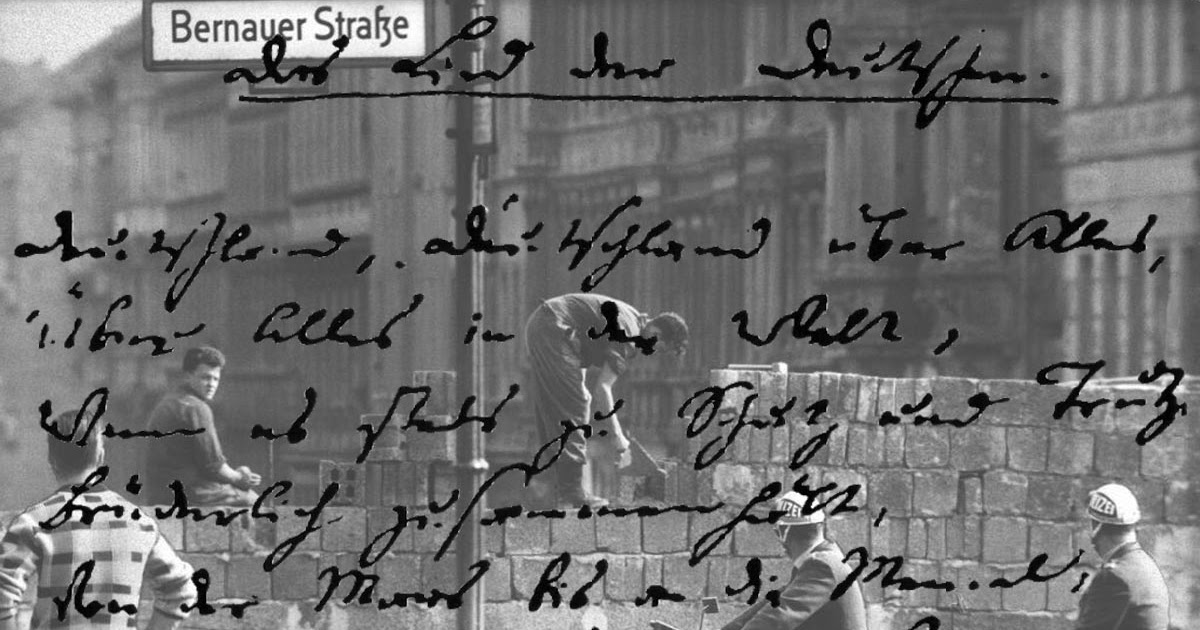 Bernauer Straße
Das Lied der Deutschen.
Deutschland, Deutschland über Alles,
Über Alles in der Welt,
Wenn es stets zu Schutz und Trutz
Brüderlich zusammenhält,
Von der Maas bis an die Memel,